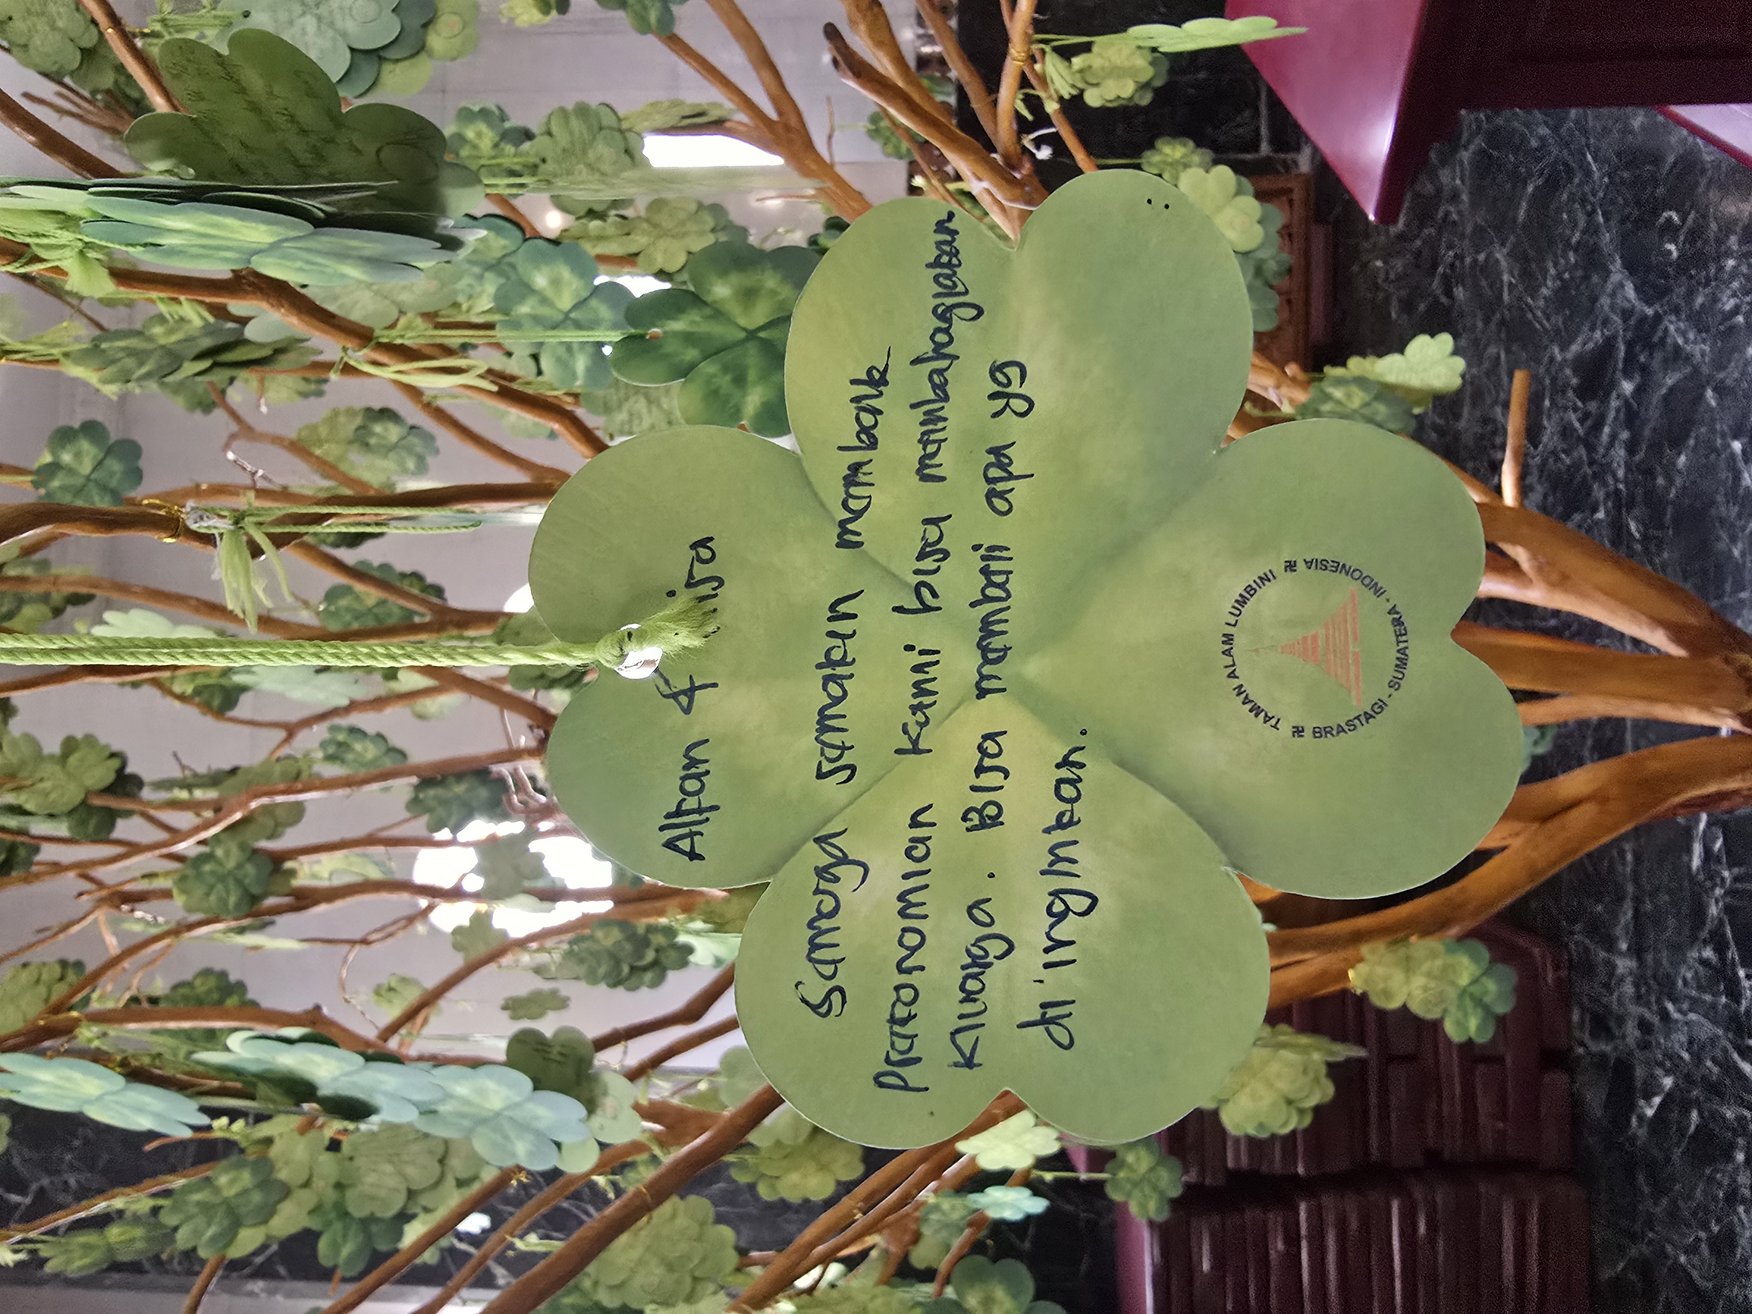 Alfan &
Semoga semakin membaik
Prekonomian kami bisa membahagiakan
Kluarga. Bisa memberi apa yg
di inginkan.
TAMAN ALAM LUMBINI
卍 BRASTAGI - SUMATERA - INDONESIA 卍